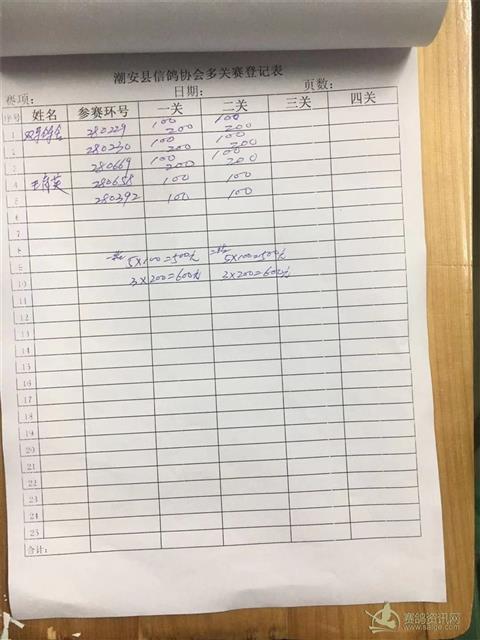 潮安县信鸽协会多关赛登记表
赛项： 日期： 页数：
序号 姓名 参赛环号 一关 二关 三关 四关
1 280229 100 200 100 200
2 280230 100 200 100 200
3 280669 100 200 100 200
4 280658 100 100
5 280392 100 100
6
7
8
9 5×100=500元 5×100=500元
10 3×200=600元 3×200=600元
11
12
13
14
15
16
17
18
19
20
21
22
23
24
25
合计：
赛鸽资讯网
www.saige.com